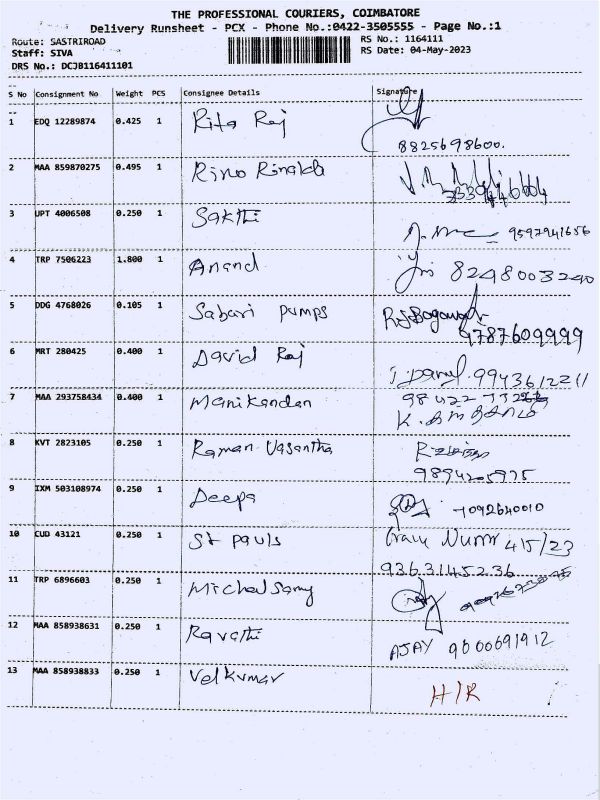 THE PROFESSIONAL COURIERS, COIMBATORE
Delivery Runsheet - PCX - Phone No.:0422-3505555 - Page No.:1
Route: SASTRIROAD RS No.: 1164111
Staff: SIVA RS Date: 04-May-2023
DRS No.: DCJB116411101
S No Consignment No Weight PCS Consignee Details Signature
1 EDQ 12289874 0.425 1 Rita Raj
8825698600.
2 MAA 859870275 0.495 1 Rino Rinalda
3 UPT 4006508 0.250 1 Sakthi
9597941656
4 TRP 7506223 1.800 1 Anand 8248003240
5 DDG 4768026 0.105 1 Sabari Pumps
9787609999
6 MRT 280425 0.400 1 David Raj
9943612211
7 MAA 293758434 0.400 1 Manikandan
8 KVT 2823105 0.250 1 Raman Vasantha
9894205975
9 IXM 503108974 0.250 1 Deepa 7092640010
10 CUD 43121 0.250 1 St Pauls 4/5/23
9363145236
11 TRP 6896603 0.250 1 Michalsamy
12 MAA 858938631 0.250 1 Ravathi AJAY 9000691912
13 MAA 858938833 0.250 1 Velkumar H/R